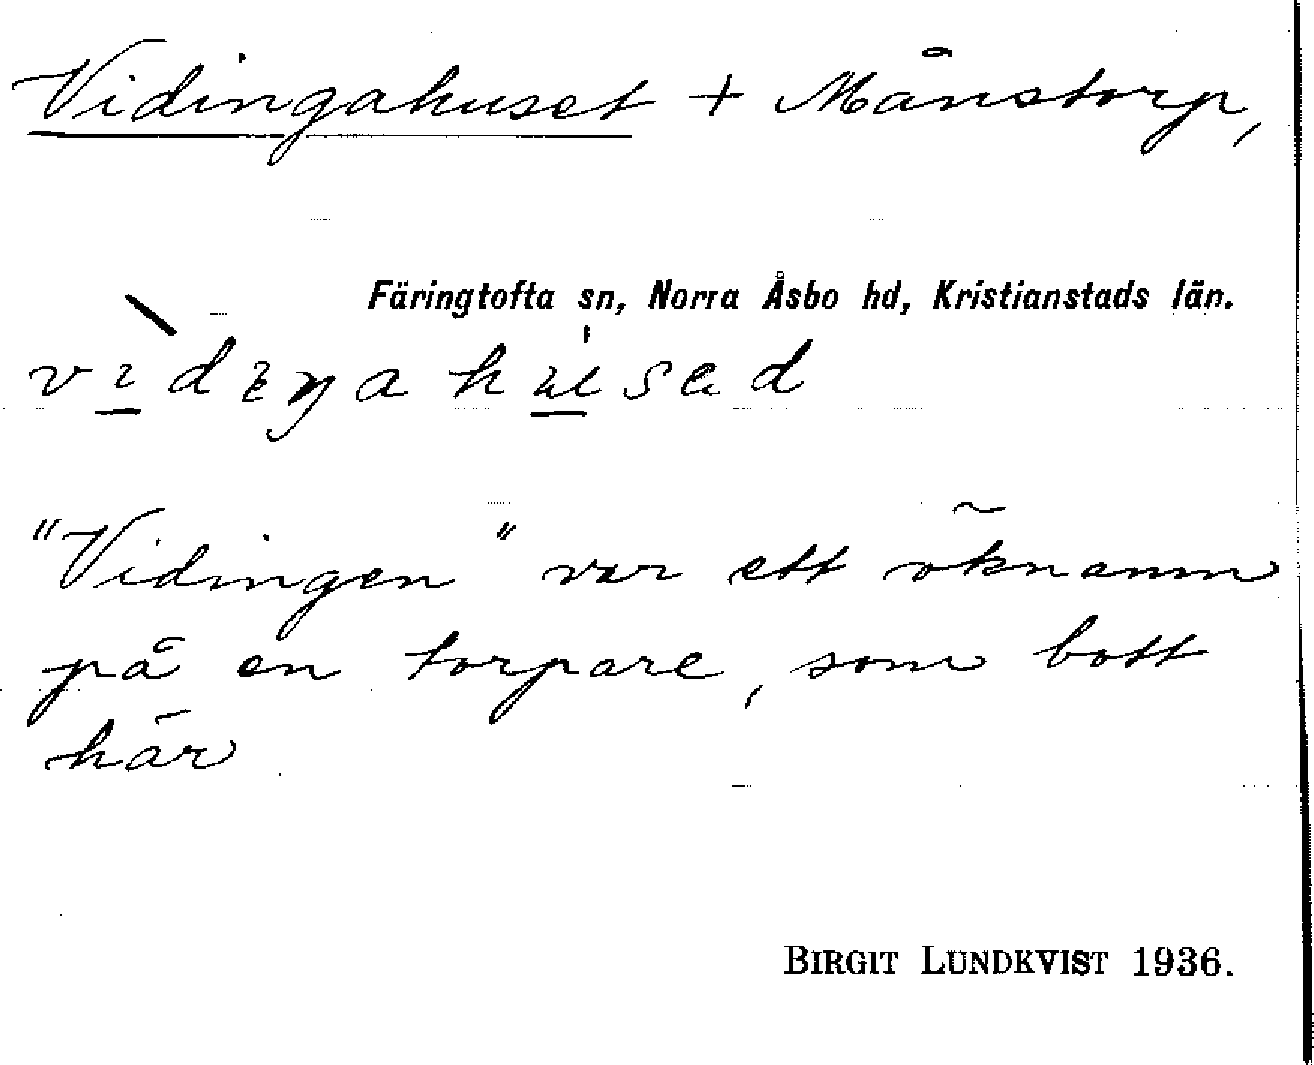 Vidingahuset + Månstorp,
Färingtofta sn, Norra Åsbo hd, Kristianstads län.
vìdıŋahu̍sad
"Vidingen" var ett öknamn
på en torpare, som bott
här
BIRGIT LUNDKVIST 1936.